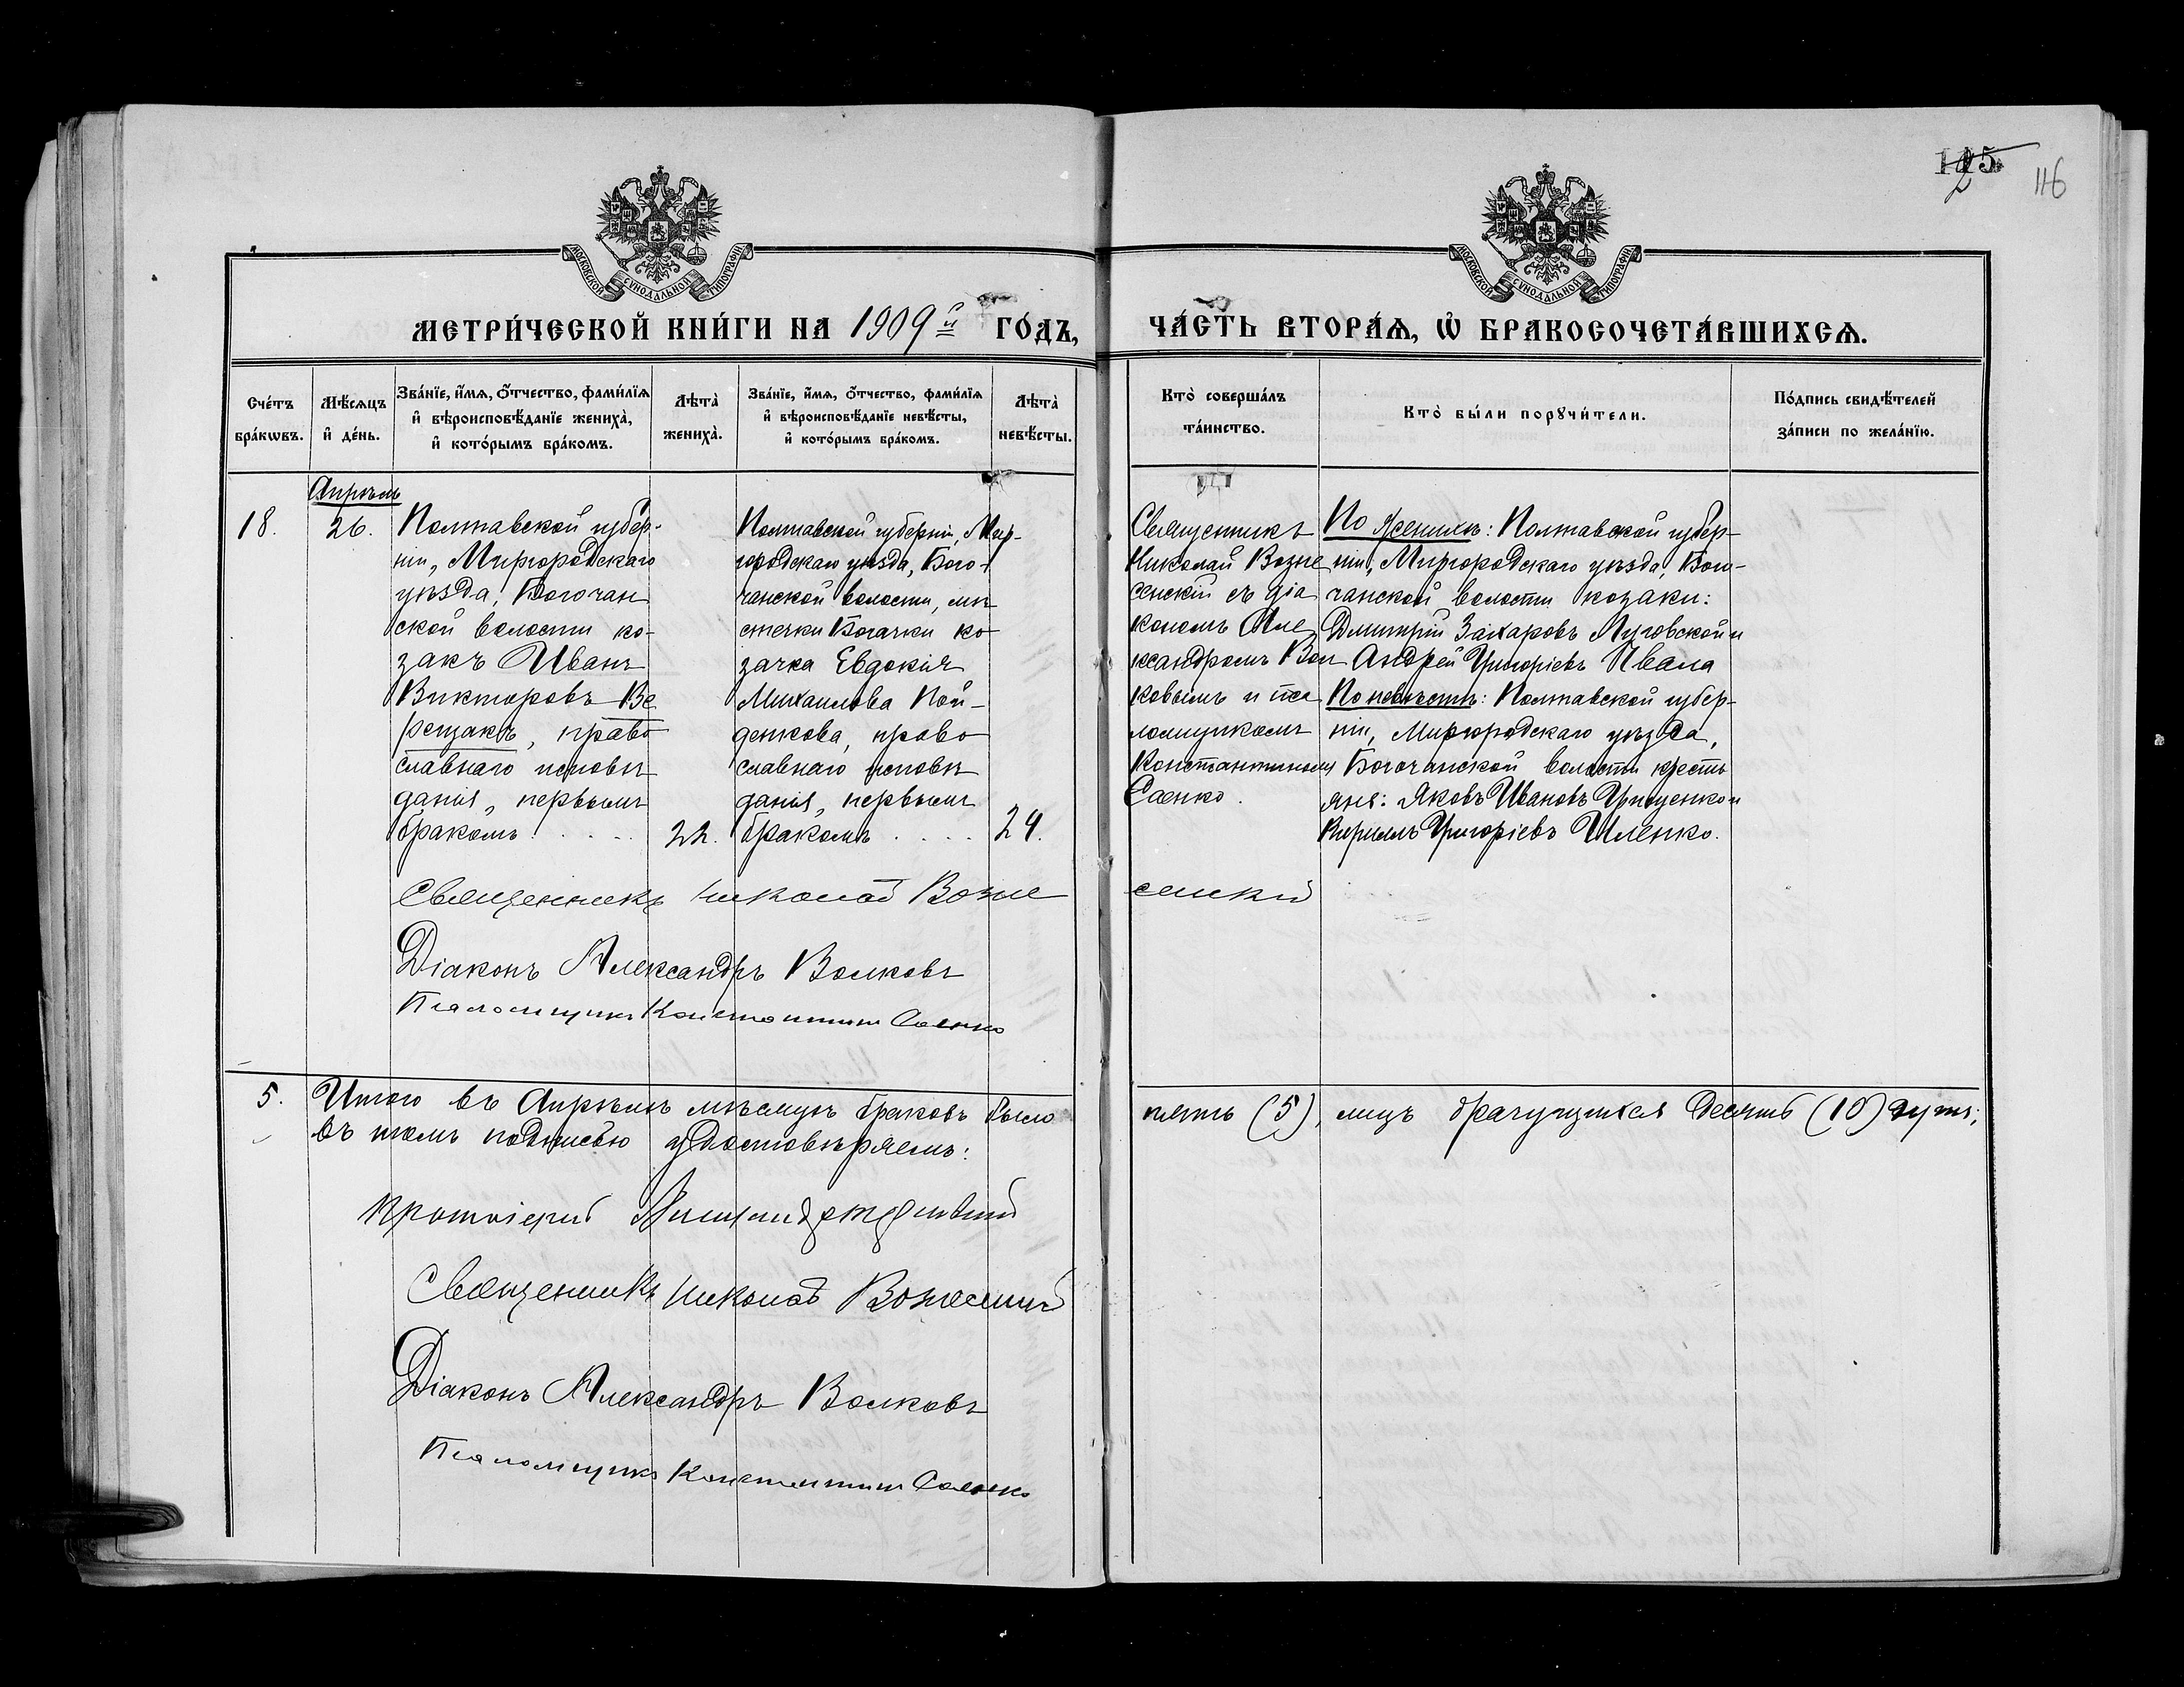 125.
116
МОСКОВСКОЙ СѴНОДАЛЬНОЙ ТИПОГРАФІИ
МОСКОВСКОЙ СѴНОДАЛЬНОЙ ТИПОГРАФІИ
МЕТРИ́ЧЕСКОЙ КНИ́ГИ НА 1909й ГО́ДЪ,
ЧА́СТЬ ВТОРА́Ѧ, Ѡ҆ БРАКОСОЧЕТА́ВШИХСѦ.
Сче́тъ бра́кѡвъ.
Мѣ́сѧцъ и҆ де́нь.
Зва́нїе, и҆́мѧ, ѻ҆́тчество, фами́лїѧ и҆ вѣроисповѣ́данїе жениха̀, и҆ кото́рымъ бра́комъ.
Лѣта̀ жениха̀.
Зва́нїе, и҆́мѧ, ѻ҆́тчество, фами́лїѧ и҆ вѣроисповѣ́данїе невѣ́сты, и҆ кото́рымъ бра́комъ.
Лѣта̀ невѣ́сты.
Кто̀ соверша́лъ та́инство.
Кто̀ бы́ли порꙋчи́тели.
По́дпись свидѣ́телей за́писи по жела́нїю.
Апрѣль
18.
26.
Полтавской губер-
ніи, Миргородскаго
уѣзда, Богочан
ской волости ко-
закъ Иванъ
Викторовъ Ве
рещакъ, право
славнаго исповѣ
данія, первымъ
бракомъ . . . .
22.
Полтавской губерніи, Мир-
городскаго уѣзда, Бого-
чанской волости, мѣ
стечки Богачки ко
зачка Евдокія
Михаилова Пой-
денкова, право
славнаго исповѣ
данія, первымъ
бракомъ . . . .
24.
Священникъ
Николай Возне
сенскій съ діа
кономъ Але
ксандромъ Вол
ковымъ и пса
ломщикомъ
Константиномъ
Саенко.
По женихѣ: Полтавской губер-
ніи, Миргородскаго уѣзда, Бого-
чанской волости козаки:
Дмитрій Захаровъ Луговской и
Андрей Григоріевъ Ивала
По невѣстѣ: Полтавской губер-
ніи, Миргородскаго уѣзда,
Богочанской волости кресть
яне: Яковъ Ивановъ Грищенко и
Кириллъ Григоріевъ Иленко.
Священникъ Николай Возне
сенскій
Діаконъ Александръ Волковъ
Псаломщикъ Константинъ Саенко
5.
Итого въ Апрѣлѣ мѣсяцѣ браковъ было
пять (5), лицъ брачущихся десять (10) душъ;
въ томъ подписью удостовѣряемъ:
Протоіерей
Священникъ Николай Вознесенскій
Діаконъ Александръ Волковъ
Псаломщикъ Константинъ Саенко